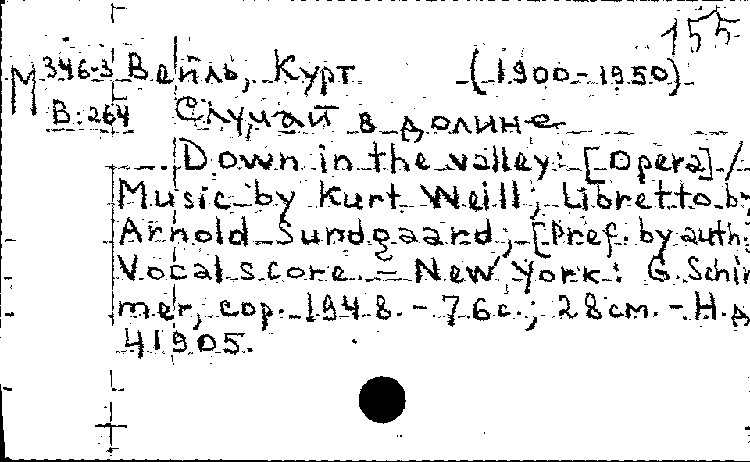 155
М 346-3 Вейль, Курт (1900-1950)
В:264 Случай в долине
Down in the valley: [Opera] /
Music by Kurt Weill; Libretto by
Arnold Sundgaard; [Pref. by auth.
Vocal score. - New York: G. Schir
mer, cop. 1948. - 76 с.; 28 см. - Н.д
41905.